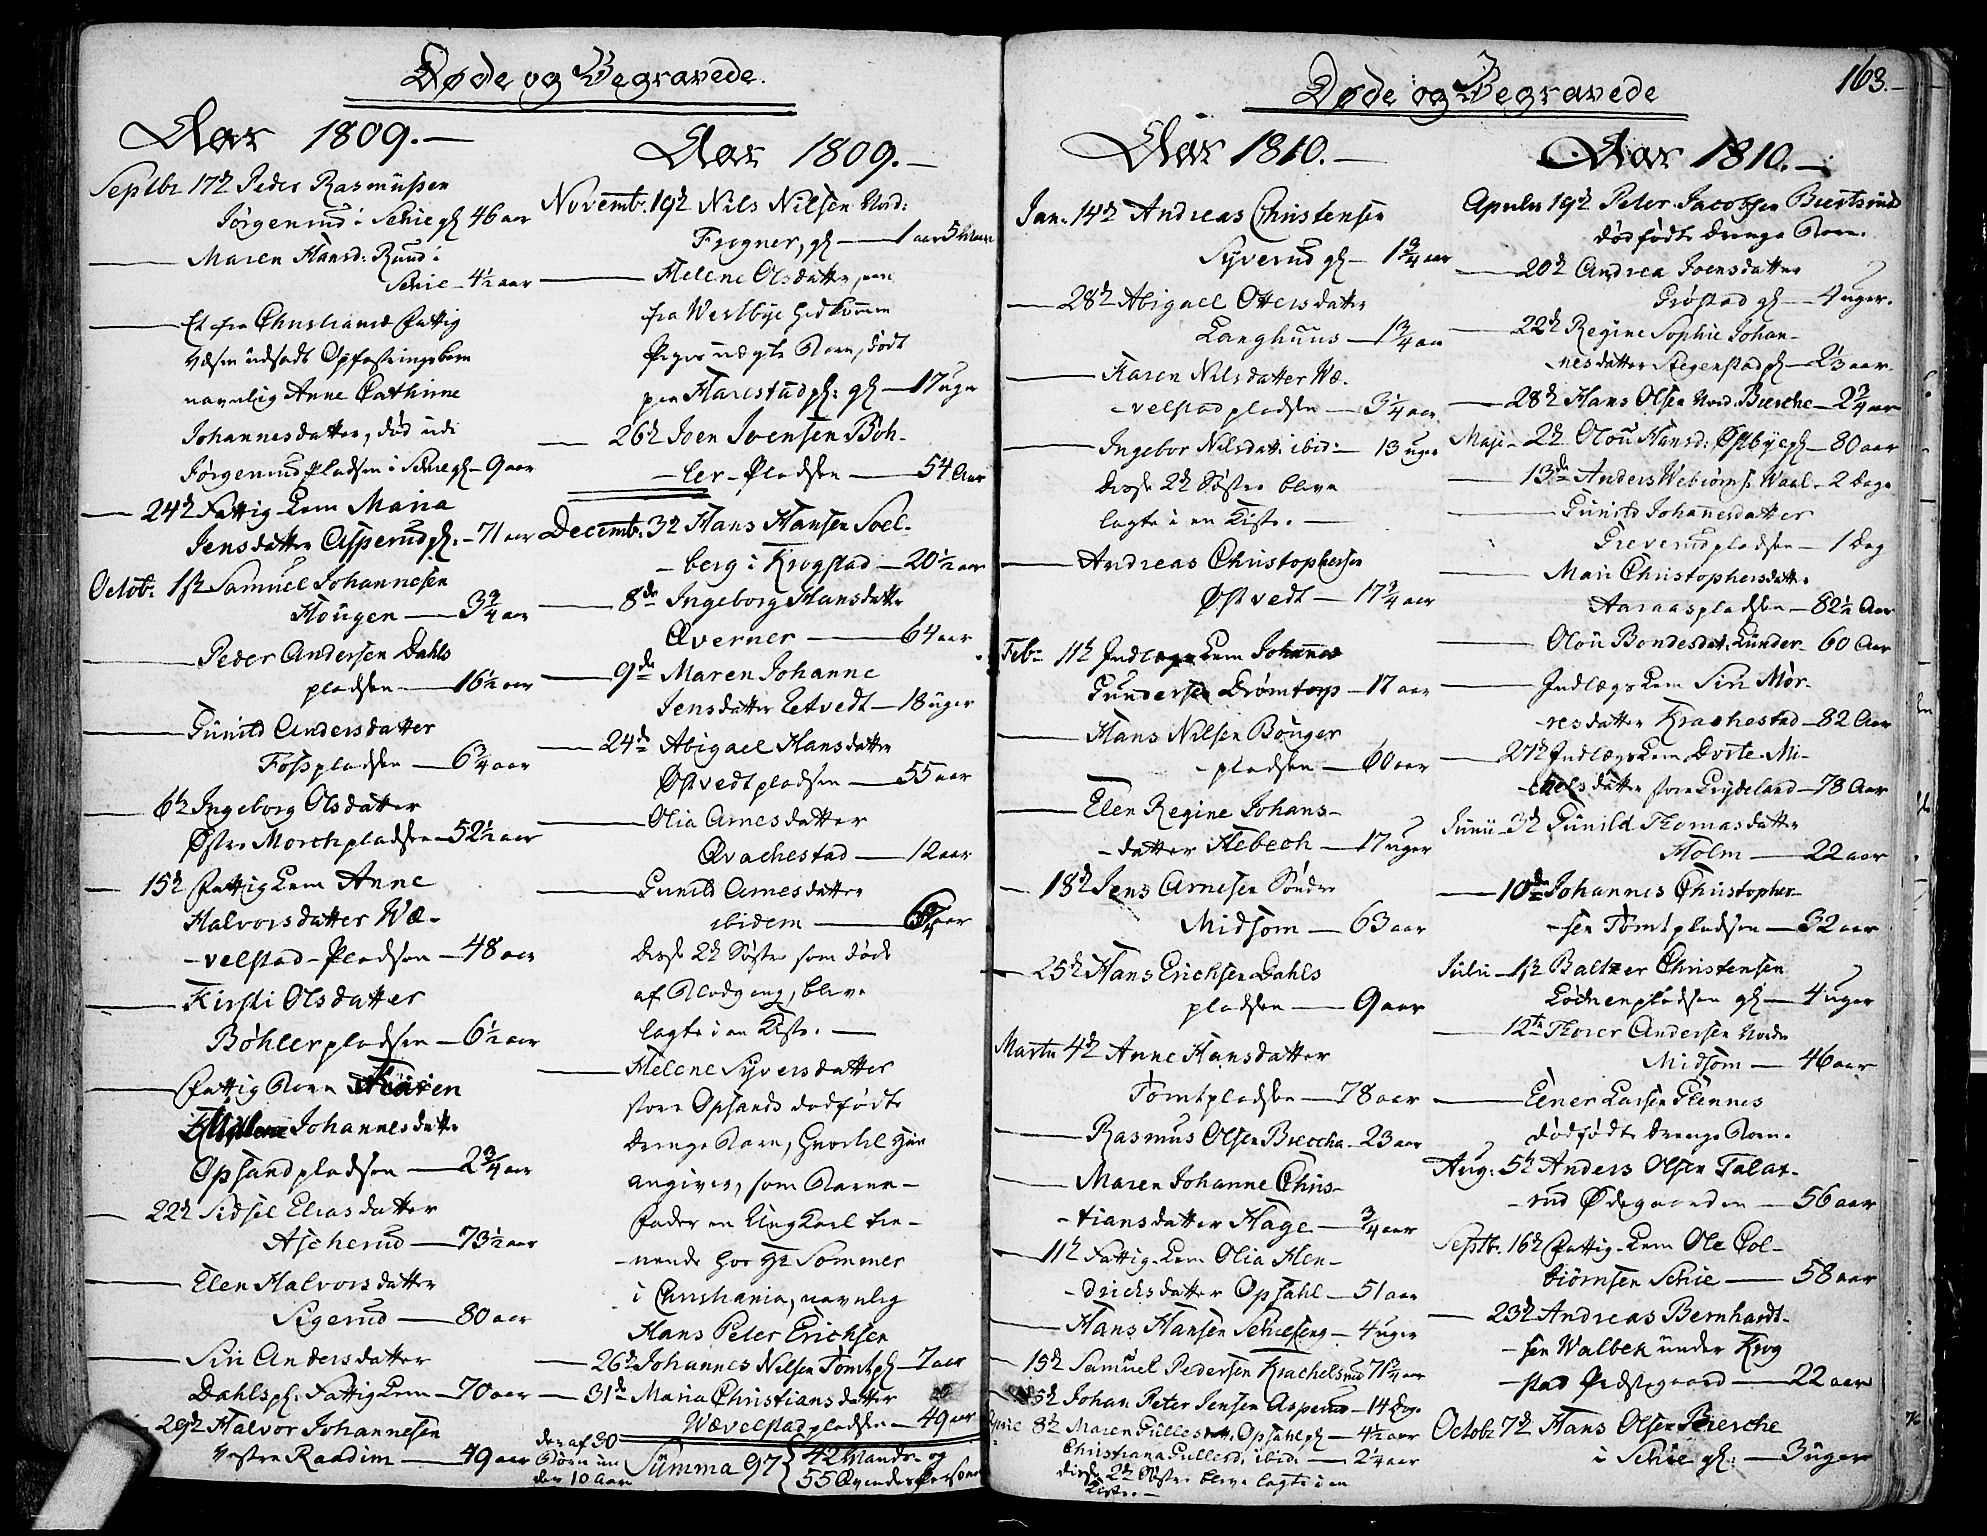 Døde og Begravede.
Aar 1809.-
Septbr 17de Peder Rasmussen
Jørgenrud i Schie gl 46 aar
Maren Hansd: Ruud i
Schie - 4½ aar
Et fra Christiania Fattig
Væsen udsadt Opfostringsbarn
navnlig Anne Cathrine
Johannesdatter, død udi
Jørgenrud Pladsen i Schie gl - 9 aar
24de Fattig-Lem Maria
Jensdatter Asperud pl. - 71 aar
Octob: 1ste Samuel Johannesen
Hougen - 3¾ aar
Peder Andersen Dahls
pladsen - 16½ aar
Gunild Andersdatter
Fosspladsen - 6¾ aar
6te Ingeborg Olsdatter
Østre Morchpladsen - 52½ aar
15de Fattig Lem Anne
Halvorsdatter Wæ-
-velstad-Pladsen - 48 aar
Kirsti Olsdatter
Bøhlerpladsen - 6½ aar
Fattig Barn Karen
Johannesdatter
Opsandpladsen - 2¾ aar
22de Sidsel Eliasdatter
Ascherud - 73½ aar
Elen Halvorsdatter
Sigerud - 80 aar
Siri Andersdatter
Dahlspl: Fattig Lem - 70 aar
29de Halvor Johannesen
Vestre Raadim - 49 aar
Aar 1809.-
Novemb. 19de Nils Nilsen Nord:
Frogner, gl - 1 aar 5 Maan
Helene Olsdatter, een
fra Westbye hidkommen
Piges uægte Barn, død
paa Harestad pl: gl - 17 uger
26de Joen Joensen Bøh-
-ler-Pladsen - 54 Aar
Decemb: 3de Hans Hansen Soel-
-berg i Krogstad - 20½ aar
8de Ingeborg Hansdatter
Qverner - 64 aar
9de Maren Johanne
Jensdatter Tetvedt - 18 uger
24de Abigael Hansdatter
Østvedtpladsen - 55 aar
Olia Arnesdatter
Qvachestad - 12 aar
Gunild Arnesdatter
ibidem - aar
Disse 2de Søstre som døde
af Blodgang, bleve
lagte i en Kiste. -
Helene Syversdatter
store Opsands dødfødte
Drenge Barn, hvortil hun
angiver, som Barne-
fader en Ung Karl tie-
-nende hos Hr Sommer
i Christiania, navnlig
Hans Peter Erichsen
26de Johannes Nilsen Tomtpl - 7 aar
31de Maria Christiansdatter
Wævelstadpladsen - 49 aar
der af 30
Børn un
der 10 Aar
Summa 97 { 42 Mands- og
55 Qvindes Personer
Døde og Begravede
163.-
Aar 1810.-
Jan: 14de Andreas Christensen
Syverud gl - 1¾ aar
28de Abigael Ottersdatter
Langhuus - 1¾ aar
Karen Nilsdatter Wæ-
-velstadpladsen - 3¼ aar
Ingebor Nilsdatt: ibid: - 13 uger
Disse 2de Søstre bleve
lagte i en Kiste. -
Andreas Christophersen
Østvedt - 17¾ aar
Febr: 11te Indlægs Lem Johannes
Gundersen Drømtorp - 17 aar
Hans Nilsen Bonger
-pladsen - 60 aar
Elen Regine Johans-
-datter Hebech - 17 uger
18de Jens Arnesen Søndre
Midsom - 63 aar
25de Hans Erichsen Dahls
pladsen - 9 aar
Martii 4de Anne Hansdatter
Tomtpladsen - 78 aar
Rasmus Olsen Bierche - 23 aar
Maren Johanne Chris-
-tiansdatter Hage - ¾ aar
11te Fattig-Lem Olia Hen-
-drichsdatter Opsahl - 51 aar
Hans Hansen Schieseng - 4 uger
15de Samuel Pedersen Krachelsrud 71¾ aar
25de Johan Peter Jensen Asperud - 14 Dage
8de Maren Gullesd., Opsahl pl - 4½ aar
Christiana Gullesd, ibid: - 2¼ aar
disse 2de Søstre bleve lagte i en
Kiste. -
Aar 1810.-
Aprilis 19de Peter Jacobsen Biertsrud
dødfødte Drenge Barn.
20de Andrea Joensdatter
Grøstad gl - 4 uger.
22de Regine Sophie Johan-
-nesdatter Stegenstad gl - 2⅓ aar.
28de Hans Olsen Nord Bierche - 2¾ aar
Maji - 2de Olou Hansd: Østbye gl - 80 aar
13de Anders Webiørns: Waal - 2 Dage
Gunild Johannesdatter
Greverudpladsen - 1 Dag
Mari Christophersdatter
Aaraaspladsen - 82½ Aar
Olou Bondesdat. Lunder - 60 Aar
Indlægs Lem Siri Mor-
-tesdatter Krachestad - 82 Aar
27de Indlægs Lem Dorte Mi-
-chelsdatter store Grydeland - 78 Aar
Junii - 3de Gunild Thomasdatter
Holm - 22 aar
10de Johannes Christopher-
-sen Tomtpladsen - 32 aar
Julii - 1ste Baltzer Christensen
Lødnenpladsen gl - 4 uger
12te Thorer Andersen Nordre
Midsom - 46 aar
Eener Larsen Glennes
dødfødte Drenge Barn.
Aug: 5te Anders Olsen Talat-
-rud Ødegaarden - 56 aar
Septb. 16de Fattig-Lem Ole Col-
biørnsen Schie - 58 aar
23de Andreas Bernhardt-
-sen Walbek under Krog
-stad Præstegaard - 22 aar
Octob 7de Hans Olsen Bierche
i Schie gl: - 3 uger